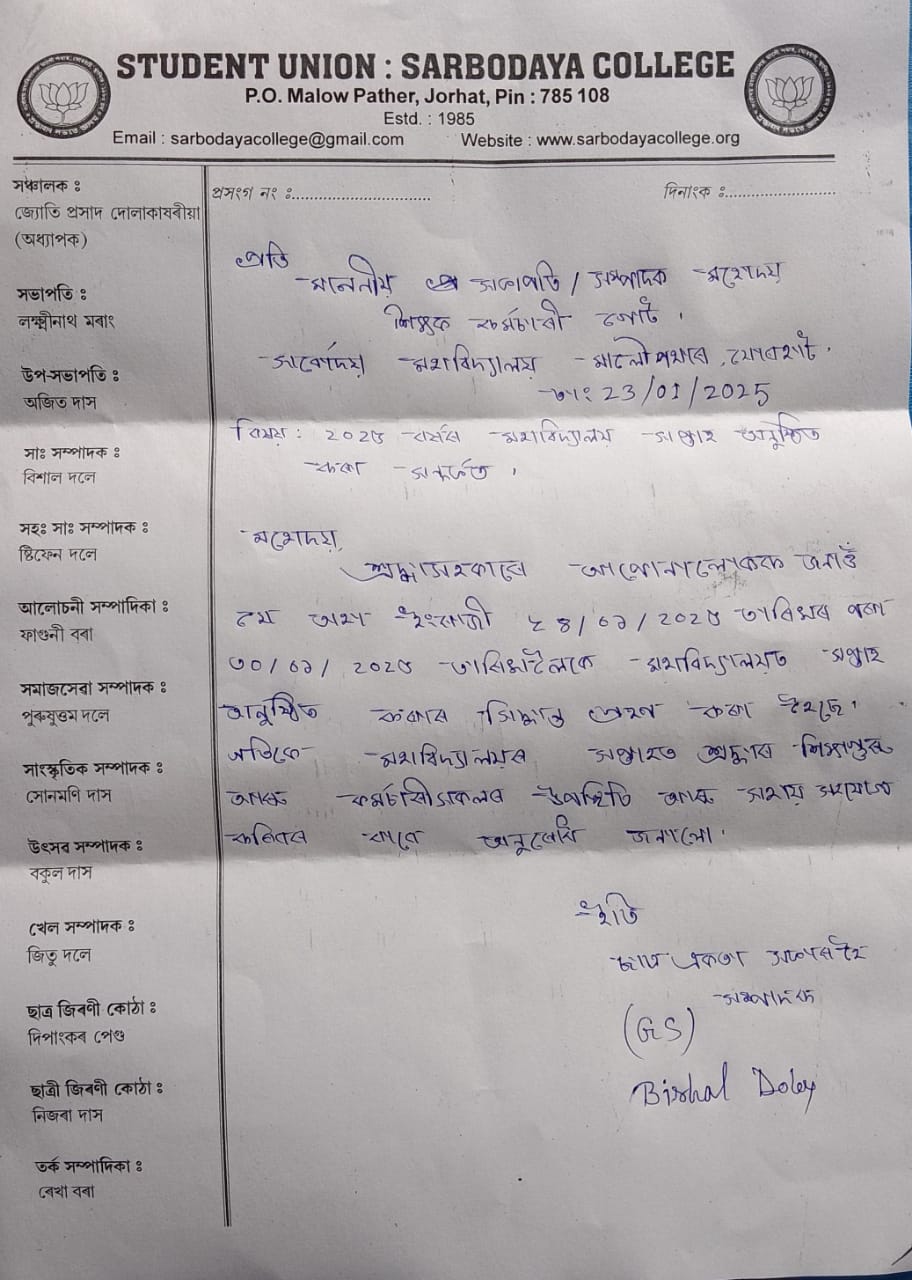 STUDENT UNION : SARBODAYA COLLEGE
P.O. Malow Pather, Jorhat, Pin : 785 108
Estd. : 1985
Email : sarbodayacollege@gmail.com Website : www.sarbodayacollege.org
সঞ্চালক ঃ
জ্যোতি প্ৰসাদ দোলাকাষৰীয়া
(অধ্যাপক)
সভাপতি ঃ
লক্ষ্মীনাথ মৰাং
উপ-সভাপতি ঃ
অজিত দাস
সাঃ সম্পাদক ঃ
বিশাল দলে
সহঃ সাঃ সম্পাদক ঃ
ষ্টিফেন দলে
আলোচনী সম্পাদিকা ঃ
ফাগুনী বৰা
সমাজসেৱা সম্পাদক ঃ
পুৰুষুত্তম দলে
সাংস্কৃতিক সম্পাদক ঃ
সোনমণি দাস
উৎসৱ সম্পাদক ঃ
বকুল দাস
খেল সম্পাদক ঃ
জিতু দলে
ছাত্ৰ জিৰণী কোঠা ঃ
দিপাংকৰ পেগু
ছাত্ৰী জিৰণী কোঠা ঃ
নিজৰা দাস
তৰ্ক সম্পাদিকা ঃ
ৰেখা বৰা
প্ৰসংগ নং ঃ.............................. দিনাংক ঃ........................
প্ৰতি
মাননীয় সভাপতি / সম্পাদক মহোদয়
শিক্ষক কৰ্মচাৰী গোট ।
সাৰ্বোদয় মহাবিদ্যালয় মালৌপথাৰ, যোৰহাট.
তাং 23/01/2025
বিষয় : ২০২৫ বৰ্ষৰ মহাবিদ্যালয় সপ্তাহ অনুষ্ঠিত
কৰা সন্দৰ্ভত ।
মহোদয়,
শ্ৰদ্ধাসহকাৰে আপোনালোকক জনাওঁ
যে অহা ইংৰাজী ২৪/০১/২০২৫ তাৰিখৰ পৰা
৩০/০১/২০২৫ তাৰিখলৈকে মহাবিদ্যালয়ত সপ্তাহ
অনুষ্ঠিত কৰাৰ সিদ্ধান্ত গ্ৰহণ কৰা হৈছে।
গতিকে মহাবিদ্যালয়ৰ সপ্তাহত শ্ৰদ্ধাৰ শিক্ষাগুৰু
আৰু কৰ্মচাৰীসকলৰ উপস্থিতি আৰু সহায় সহযোগ
কৰিবৰ বাবে অনুৰোধ জনালো।
ইতি
ছাত্ৰ একতা সভাৰ হৈ
সম্পাদক
(GS)
Bishal Doley